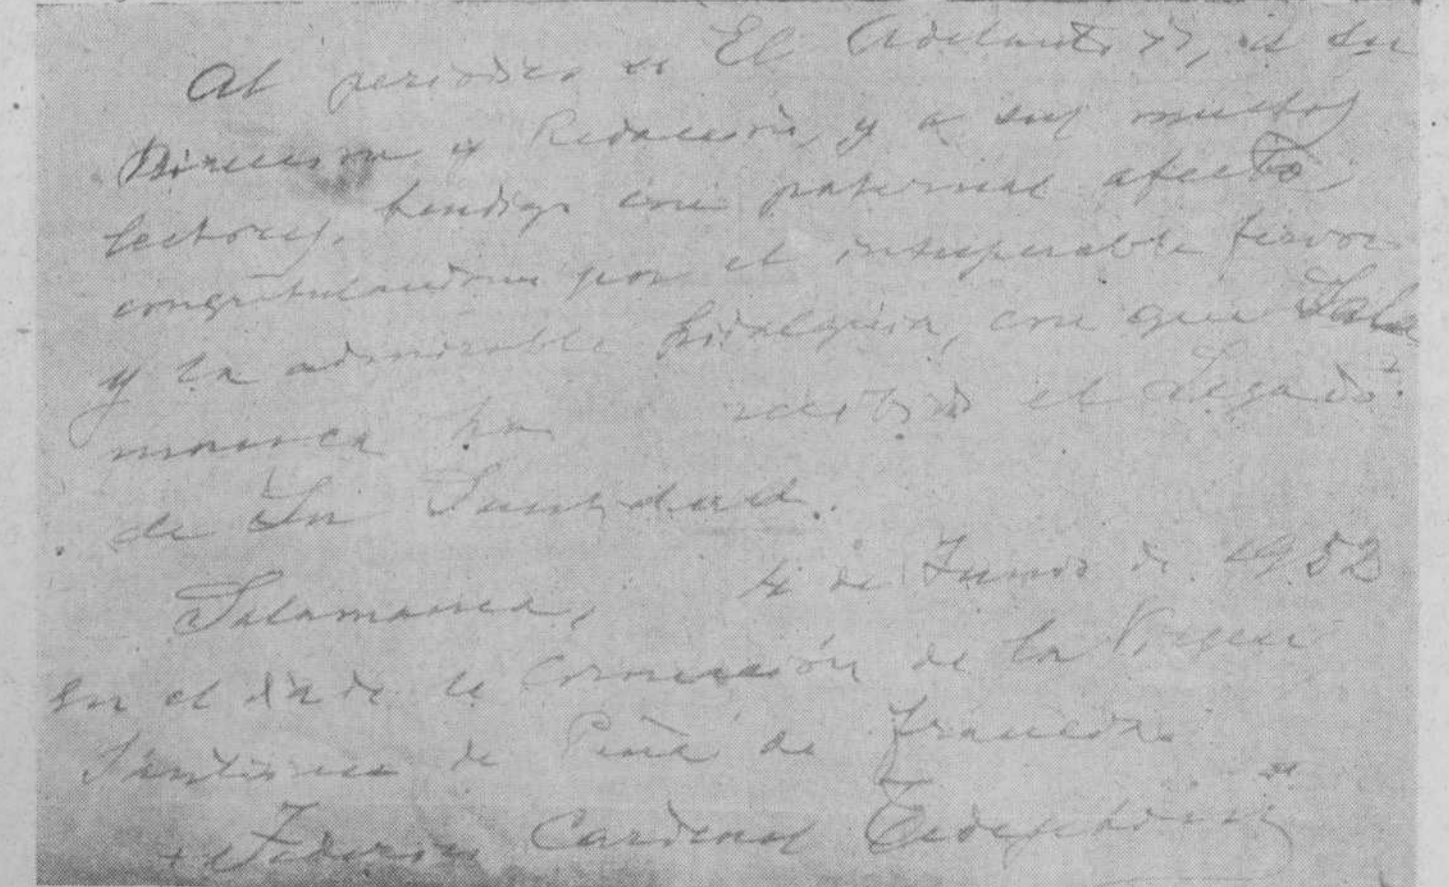 Al periódico « El Adelanto », a su
Dirección y Redacción, y a sus muchos
lectores, bendigo con paternal afecto
congratulandome por el insuperable fervor
y la admirable hidalguia, con que Sala
manca ha recibido el Legado
de Su Santidad.
Salamanca, 4 de Junio de 1952
en el dia de la Coronación de la Virgen
Santisima de Peña de Francia
+ Federico Cardenal Tedeschini